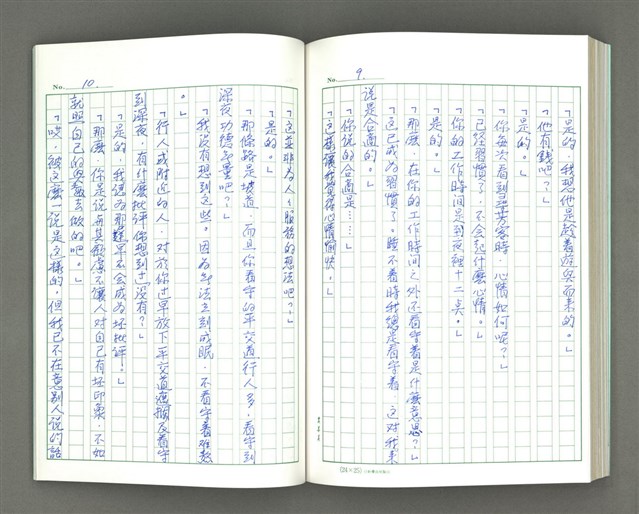 No. 9.
「是的，我想他是趁着遊興而來的。」
「他有錢吧？」
「是的。」
「你每次看到尋芳客時，心情如何呢？」
「已經習慣了，不會起什麼心情。」
「你的工作時間是到夜裡十二点。」
「是的。」
「那麼，在你的工作時間之外还看守着是什麼意思？」
「這已成為習慣了。睡不着時我總是看守着，這对我來
說是合適的。」
「你說的合適是……」
「這樣讓我覺得心情愉快。」
(24×25)
No. 10.
「這並非為人人服務的想法吧？」
「是的。」
「那條路是坡道，而且你看守的平交道行人多，看守到
深夜功德無量吧？」
「我沒有想到這些。因為無法立刻成眠，不看守着難熬
。」
「行人或附近的人，对於你过早放下平交道遮攔及看守
到深夜，有什麼批評你想到过沒有？」
「是的，我認為那還不会成為坏批評！」
「那麼，你是說与其顧慮不讓人对自己有坏印象，不如
就照自己的興趣去做的吧。」
「哎，被这麼一說是这樣的，但我已不在意別人說的話